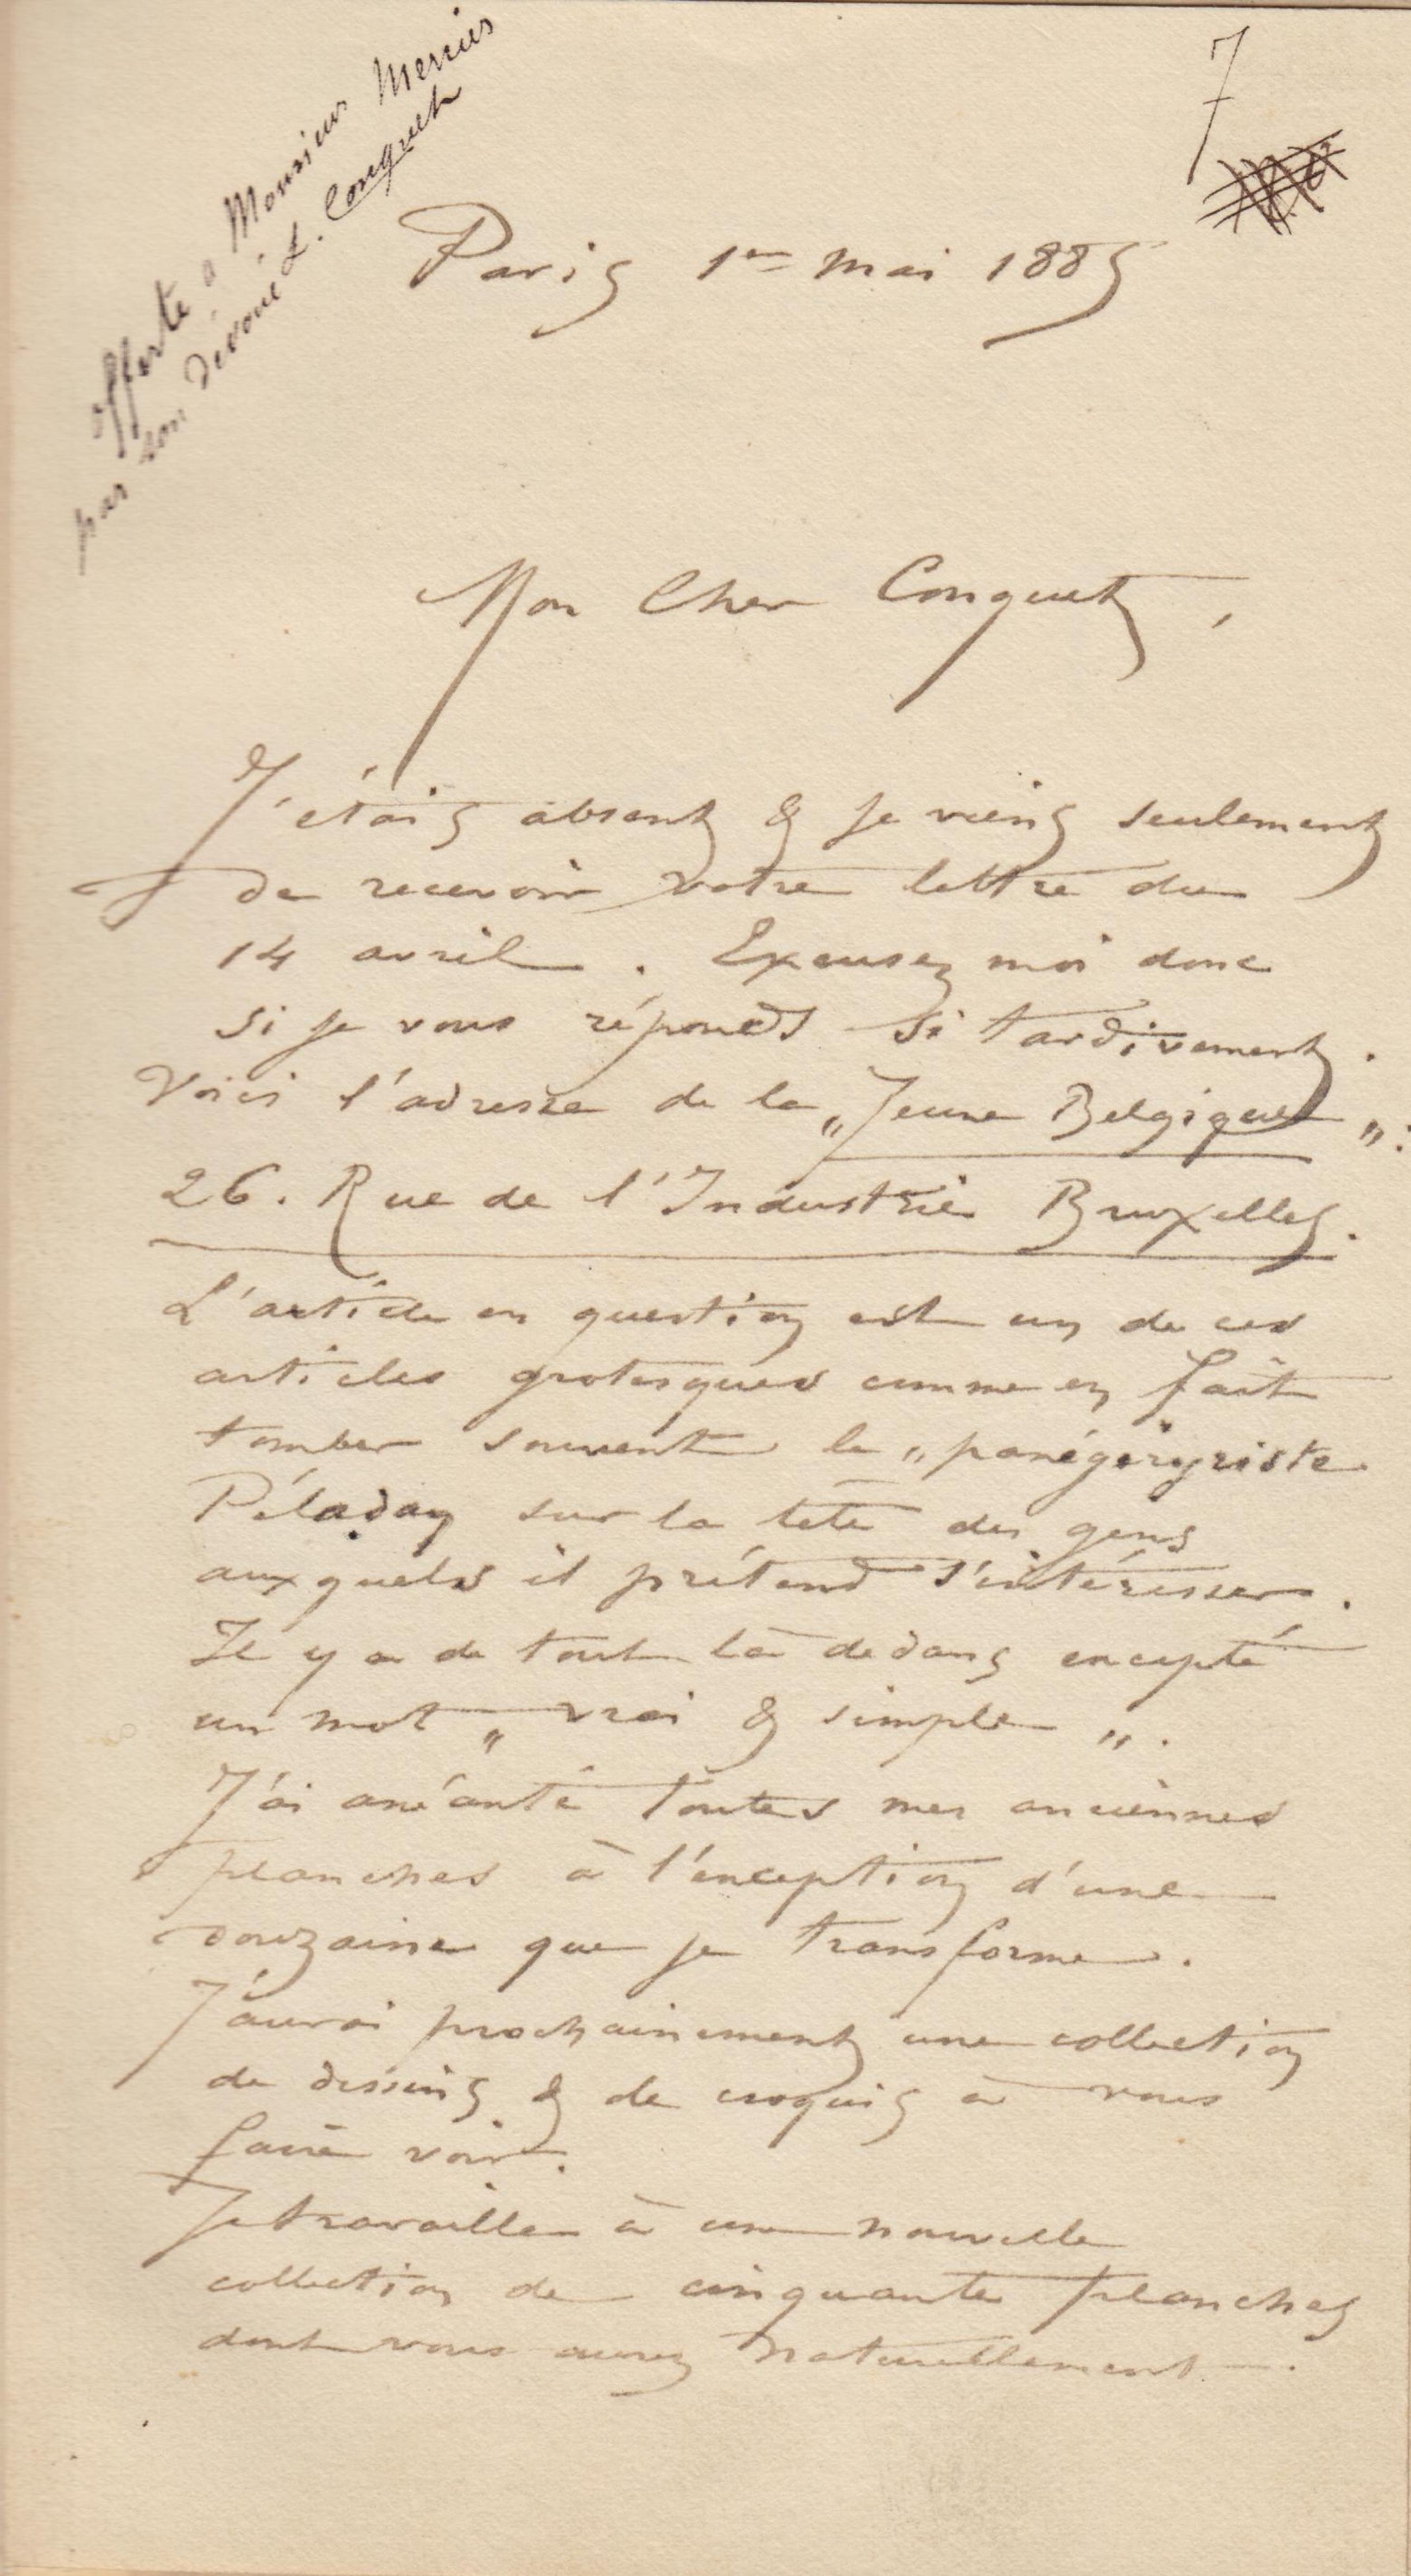 offerte à Monsieur Menius
par son dévoué L. Conquet
7
Paris 1er mai 1885
Mon Cher Conquet,
J'étais absent & je viens seulement
de recevoir votre lettre du
14 avril. Excusez moi donc
si je vous réponds si tardivement.
Voici l'adresse de la „Jeune Belgique„:
26. Rue de l'Industrie Bruxelles.
L'article en question est un de ces
articles grotesques comme en fait
tomber souvent le „panégéryriste
Péladan sur la tête des gens
auxquels il prétend s'intéresser.
Il y a de tout là dedans excepté
un mot „vrai & simple„.
J'ai anéanti toutes mes anciennes
planches à l'exception d'une
douzaine que je transforme.
J'aurai prochainement une collection
de dessins & de croquis à vous
faire voir.
Je travaille à une nouvelle
collection de cinquante planches
dont vous aurez naturellement